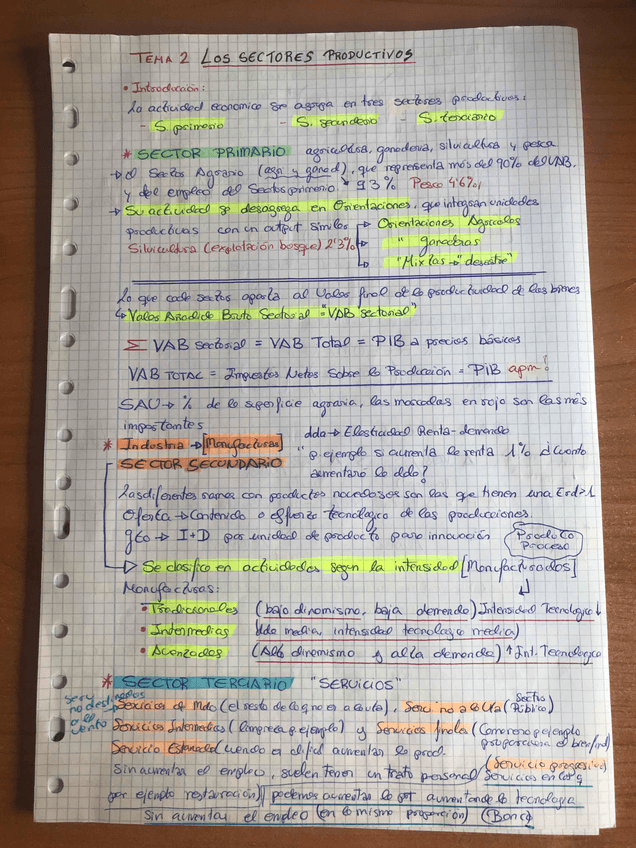 TEMA 2 LOS SECTORES PRODUCTIVOS
• Introducción:
La actividad economica se agrega en tres sectores productivos:
- S. primario - S. secundario - S. terciario
* SECTOR PRIMARIO agricultura, ganaderia, silvicultura y pesca
→ el Sector Agrario (agr y ganad), que representa más del 90% del VAB.
y del empleo del Sector primario. 93% Pesca 4'6%,
→ Su actividad se desagrega en Orientaciones, que integran unidades
productivas con un output similar → Orientaciones Agricolas
Silvicultura (explotación bosque) 2'3% → " ganaderas
→ "Mixtas →
Lo que cada sector aporta al Valor final de la productividad de los bienes
↳ Valor Añadido Bruto Sectorial = "VAB sectorial"
Σ VAB sectorial = VAB Total = PIB a precios básicos
VAB TOTAL = Impuestos Netos Sobre la Producción = PIB apm!
SAU → % de la superficie agraria, las marcadas en rojo son las más
importantes
* Industria → [Manufacturas] dda → Elasticidad Renta-demanda
SECTOR SECUNDARIO p ejemplo si aumenta la renta 1% ¿Cuanto
aumentará la dda?
Las diferentes ramas con productos novedosos son las que tienen una Erd>1
Oferta → Contenido o esfuerzo tecnologico de las producciones.
gto → I+D por unidad de producto para innovación Producto
Proceso
→ Se clasifica en actividades segun la intensidad [Manufacturados]
Manufacturas:
• Tradicionales (bajo dinamismo, baja demanda) Intensidad Tecnologica ↓
• Intermedias (dda media, intensidad tecnologica media)
• Avanzadas (Alto dinamismo y alta demanda) ↑ Int. Tecnologica
* SECTOR TERCIARIO "SERVICIOS"
Serv no destinados a la venta
Servicios de Mdo (el resto de lo q no es a la vta), Serv. no a la Vta (Sector Público)
Servicios Intermedios (limpieza p ejemplo) y Servicios finales (Comercio p ejemplo
Servicio Estancado cuando es dificil aumentar la prod. proporciona el bien final)
Sin aumentar el empleo, suelen tener un trato personal (Servicio progresivo)
por ejemplo restauración) || podemos aumentar la pdt aumentando la tecnologia Servicios en los q
sin aumentar el empleo (en la misma proporción) (Banca